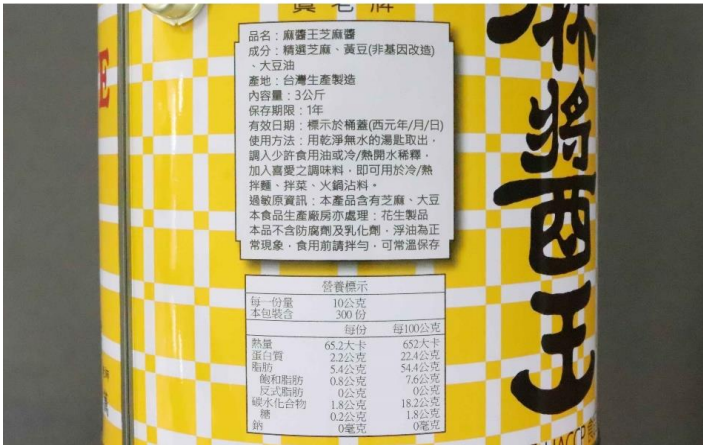 真老牌
品名：麻醬王芝麻醬
成分：精選芝麻、黃豆(非基因改造)
、大豆油
產地：台灣生產製造
內容量：3公斤
保存期限：1年
有效日期：標示於桶蓋(西元年/月/日)
使用方法：用乾淨無水的湯匙取出，
調入少許食用油或冷/熱開水稀釋，
加入喜愛之調味料，即可用於冷/熱
拌麵、拌菜、火鍋沾料。
過敏原資訊：本產品含有芝麻、大豆
本食品生產廠房亦處理：花生製品
本品不含防腐劑及乳化劑，浮油為正
常現象，食用前請拌勻，可常溫保存
營養標示
每一份量 10公克
本包裝含 300份
每份 每100公克
熱量 65.2大卡 652大卡
蛋白質 2.2公克 22.4公克
脂肪 5.4公克 54.4公克
飽和脂肪 0.8公克 7.6公克
反式脂肪 0公克 0公克
碳水化合物 1.8公克 18.2公克
糖 0.2公克 1.8公克
鈉 0毫克 0毫克
麻醬王
E
HACCP